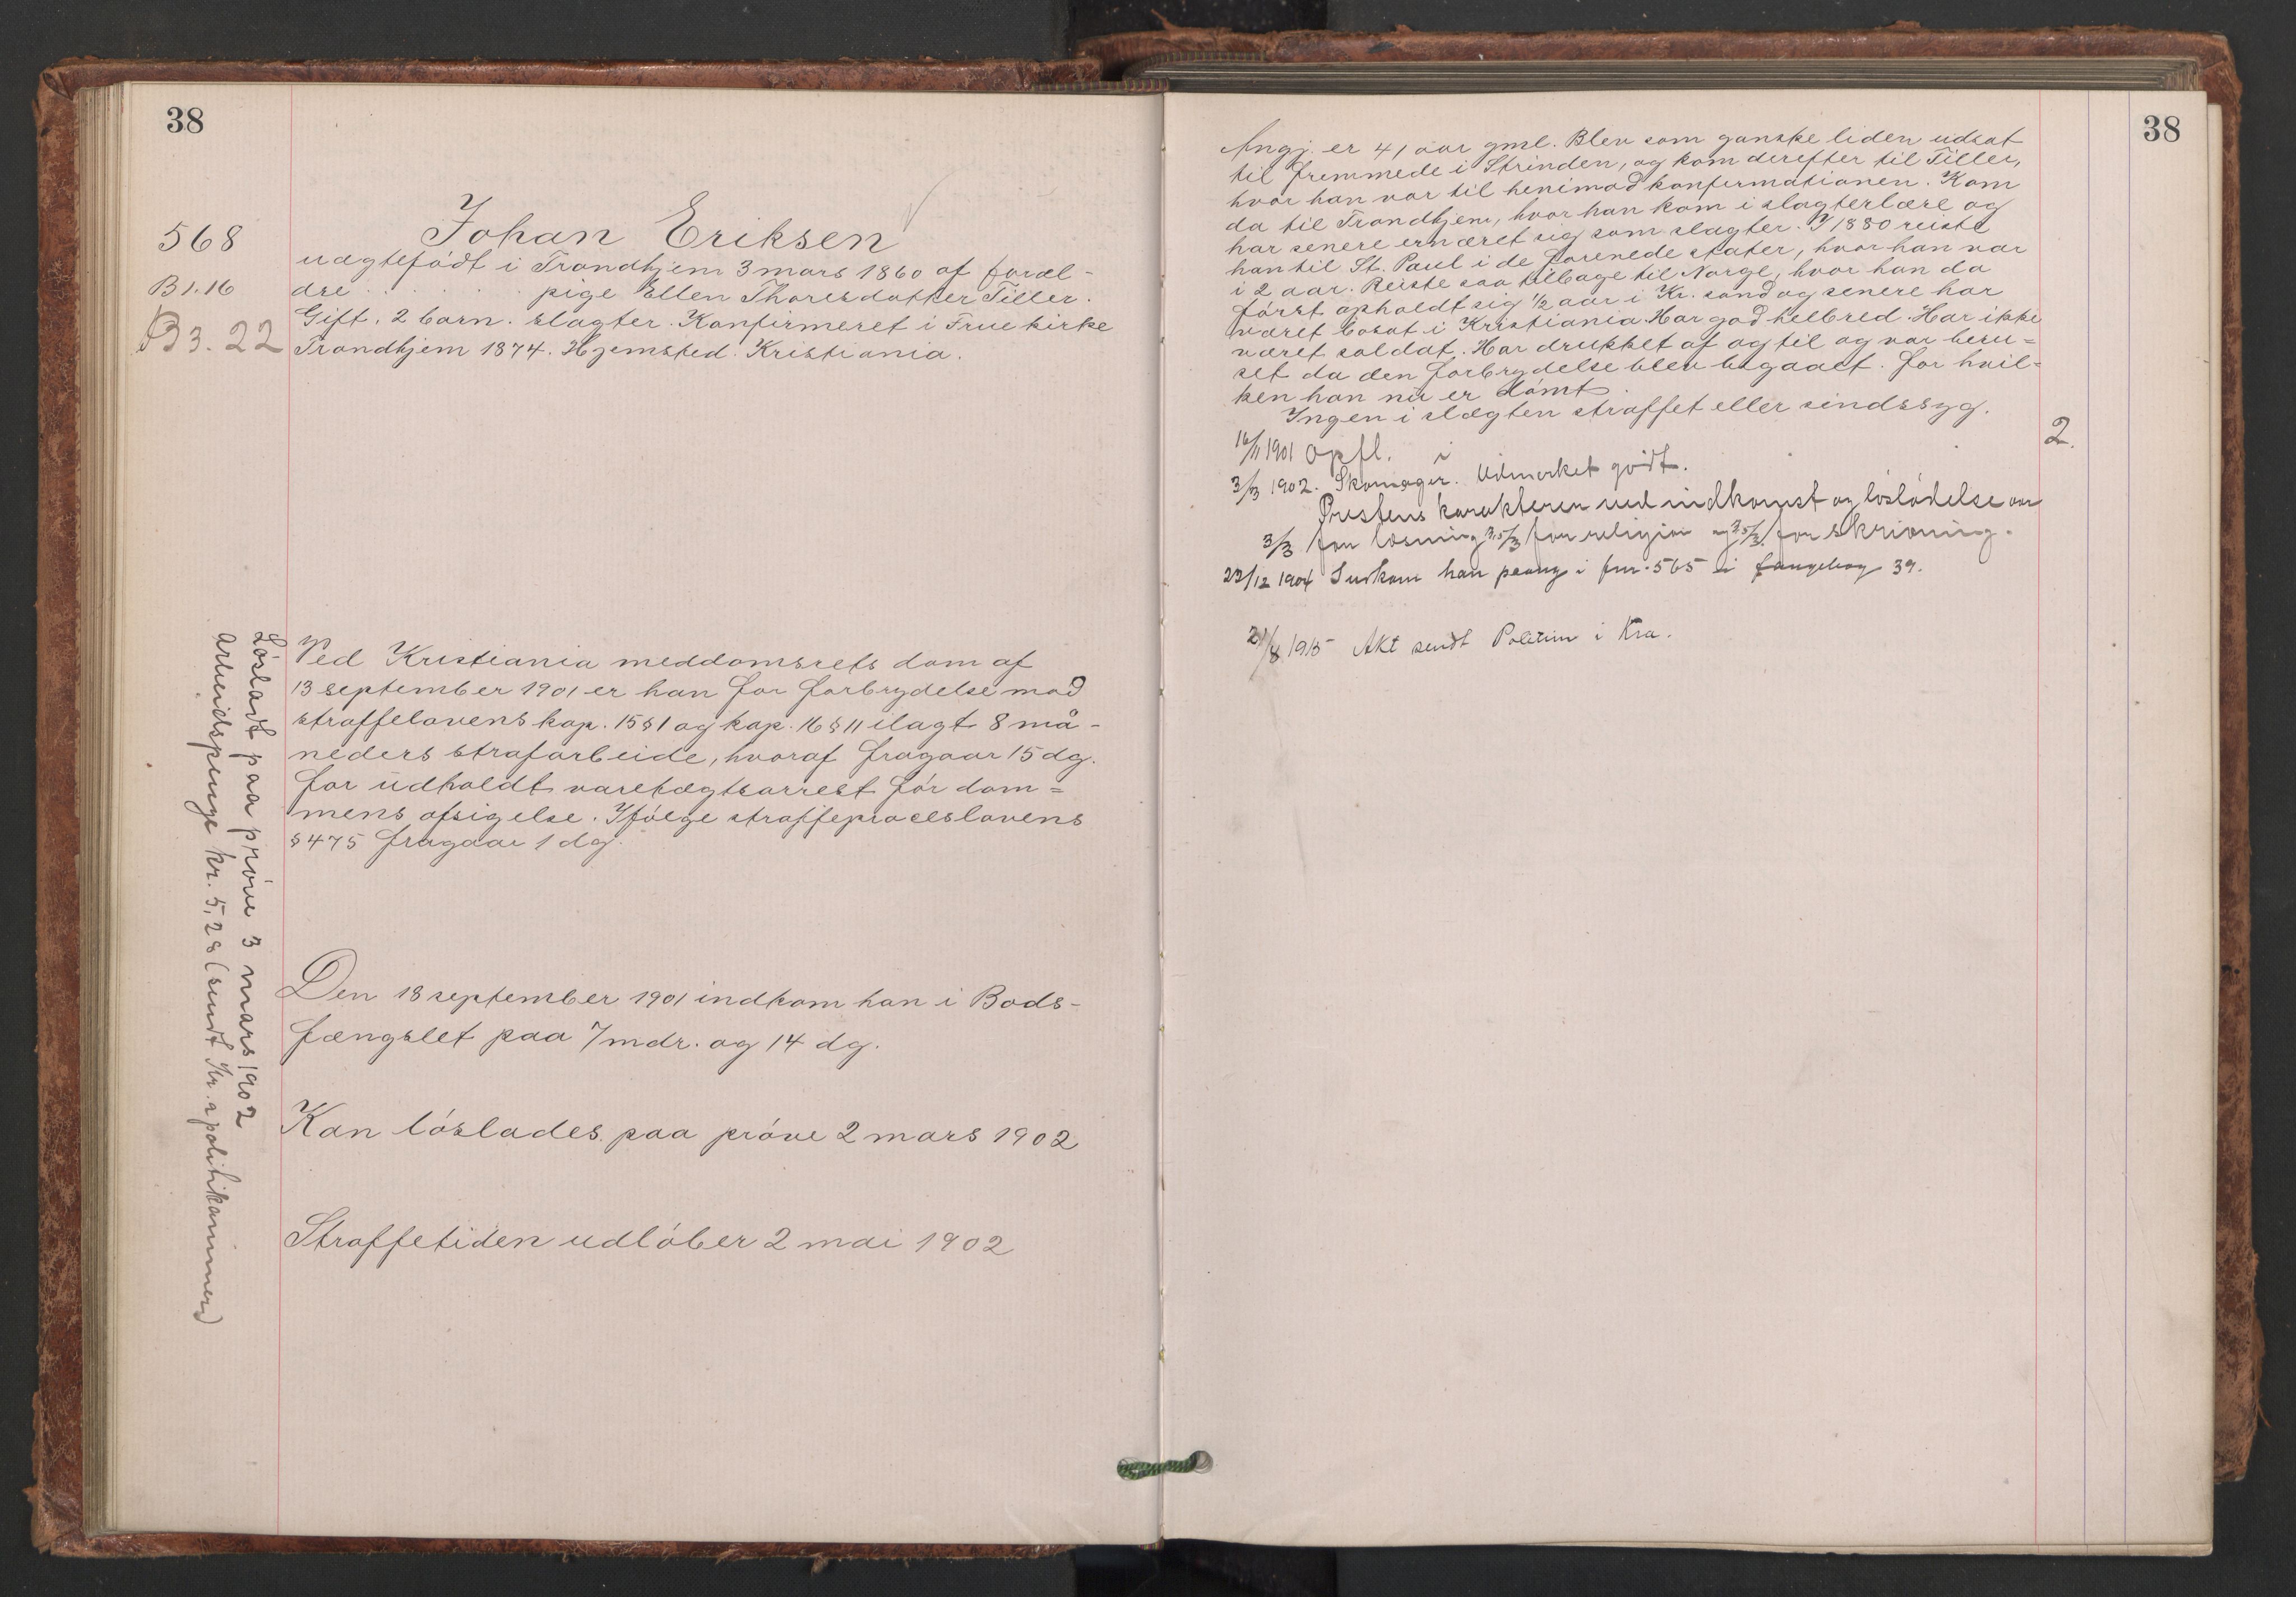 38
568
B 1.16
B 3. 22
Johan Eriksen
uægtefødt i Trondhjem 3 mars 1860 af foræl-
dre . . . . . . pige Ellen Thoresdatter Tiller.
Gift. 2 barn. slagter. Konfirmeret i Frue kirke
Trondhjem 1874. Hjemsted: Kristiania.
Ved Kristiania meddomsrets dom af
13 september 1901 er han for forbrydelse mod
straffelovens kap. 15 § 1 og kap. 16 § 11 ilagt 8 må-
neders strafarbeide, hvoraf fragaar 15 dg.
for udholdt varetægtsarrest før dom=
mens afsigelse. Ifølge straffeproceslovens
§ 475 fragaar 1 dg.
Den 18 september 1901 indkom han i Bods-
fængslet paa 7 mdr. og 14 dg.
Kan løslades paa prøve 2 mars 1902
Straffetiden udløber 2 mai 1902
Løsladt paa prøve 3 mars 1902
Arbeidspenge kr. 5,28 (sendt Kr.a politikammer)
38
Angj. er 41 aar gml. Blev som ganske liden udsat
til fremmede i Strinden, og kom derefter til Tiller,
hvor han var til henimod konfirmationen. Kom
da til Trondhjem, hvor han kom i slagterlære og
har senere ernæret sig som slagter. I 1880 reiste
han til St. Paul i de forenede stater, hvor han var
i 2 aar. Reiste saa tilbage til Norge, hvor han da
først opholdt sig 1/2 aar i Kr. sand og senere har
været bosat i Kristiania. Har god helbred. Har ikke
været soldat. Har drukket af og til og var beru=
set da den forbrydelse blev begaaet. for hvil-
ken han nu er dømt.
Ingen i slægten straffet eller sindssyg.
16/11 1901 opfl. i
2.
3/3 1902. Skomager. Udmerket godt.
Prestens karakterer ved indkomst og løsladelse var
3/3 for læsning 3,5/3 for religion og 3,5/3 for skrivning.
23/12 1904 Indkom han paany i fnr. 565 i fangebog 39.
21/8 1915 Akt sendt Politim i Kra.